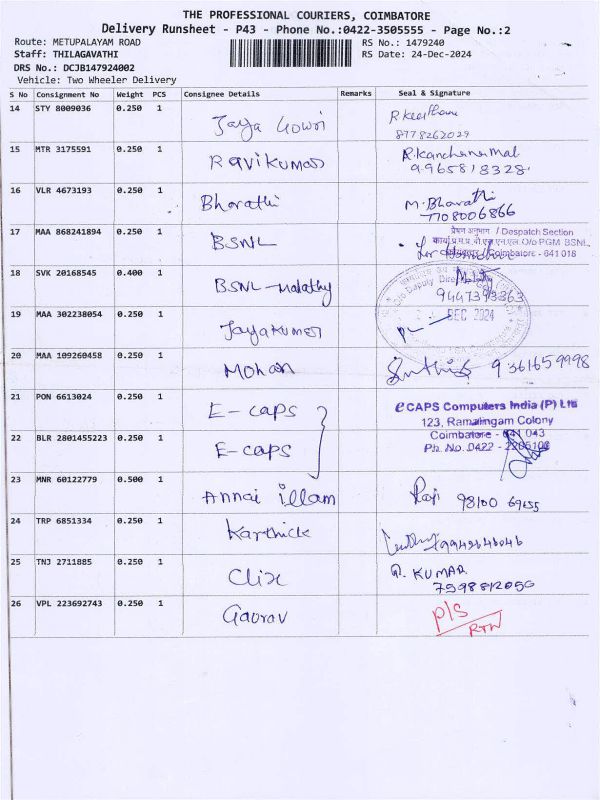 THE PROFESSIONAL COURIERS, COIMBATORE
Delivery Runsheet - P43 - Phone No.:0422-3505555 - Page No.:2
Route: METUPALAYAM ROAD RS No.: 1479240
Staff: THILAGAVATHI RS Date: 24-Dec-2024
DRS No.: DCJB147924002
Vehicle: Two Wheeler Delivery
S No Consignment No Weight PCS Consignee Details Remarks Seal & Signature
14 STY 8009036 0.250 1 Jaya Gowri
8778262029
15 MTR 3175591 0.250 1 Ravikumar R.Kanchanamal
9965818328
16 VLR 4673193 0.250 1 Bharathi M.Bharathi
7708006866
17 MAA 868241894 0.250 1 BSNL / Despatch Section
O/o PGM BSNL,
Coimbatore - 641 018
18 SVK 20168545 0.400 1 BSNL-Malathy
9447393363
DEC 2024
19 MAA 302238054 0.250 1 Jayakumar
20 MAA 109260458 0.250 1 Mohan 9361659998
21 PON 6613024 0.250 1 E-caps eCAPS Computers India (P) Ltd
123, Ramalingam Colony
22 BLR 2801455223 0.250 1 E-caps Coimbatore - 641 043
Ph. No. 0422 -
23 MNR 60122779 0.500 1 Annai illam Raji 98100 69655
24 TRP 6851334 0.250 1 Karthick 9942646046
25 TNJ 2711885 0.250 1 Clix R. KUMAR
26 VPL 223692743 0.250 1 Gaurav P/S
RTN